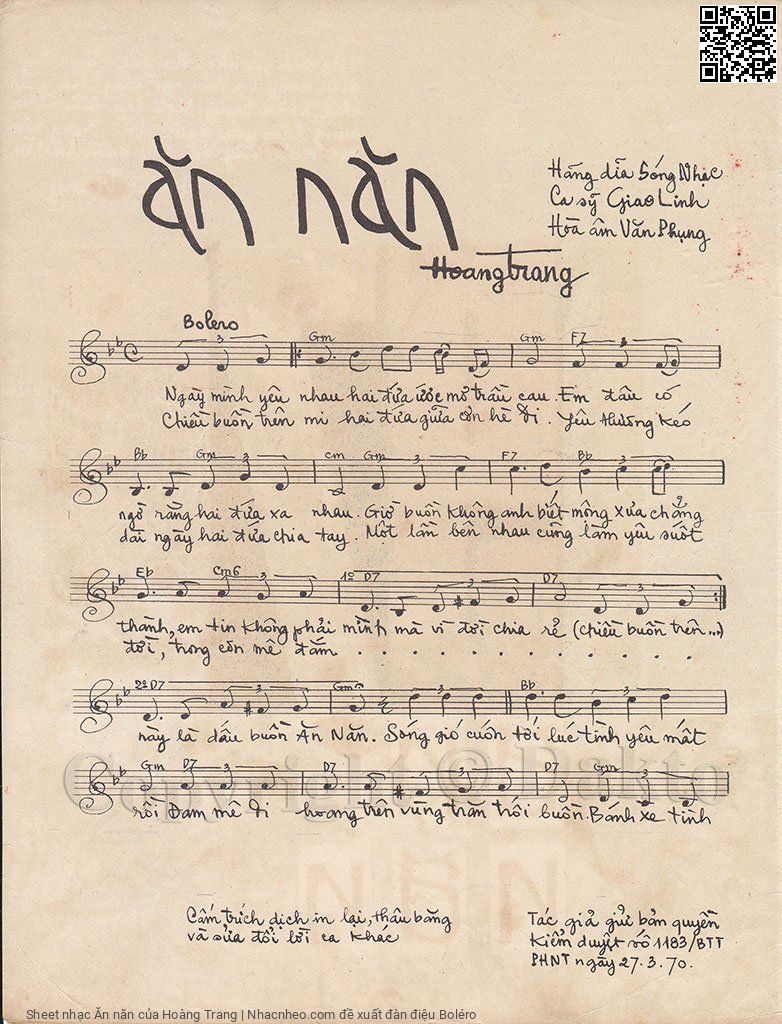 ăn năn
Hãng dĩa Sóng Nhạc
Ca sỹ Giao Linh
Hòa âm Văn Phụng
Hoàng Trang
Bolero
Gm Gm F7
Ngày mình yêu nhau hai đứa ước mơ trầu cau. Em đâu có
Chiều buồn trên mi hai đứa giữa cơn hè đi. Yêu thương kéo
Bb Gm Cm Gm F7 Bb
ngờ rằng hai đứa xa nhau. Giờ buồn không anh biết mộng xưa chẳng
dài ngày hai đứa chia tay. Một lần bên nhau cũng làm yêu suốt
Eb Cm6 1º D7 D7
thành, em tin không phải mình mà vì đời chia rẽ (chiều buồn trên...)
đời, trong cơn mê đắm . . . . . . . . . .
2º D7 Gm Bb
này là dấu buồn Ăn Năn. Sóng gió cuốn tới lúc tình yêu mất
Gm D7 D7 D7 Gm
rồi Đam mê đi hoang trên vùng trăn trối buồn. Bánh xe tình
Copyright © Dakto
Cấm trích dịch in lại, thâu băng
và sửa đổi lời ca khác
Tác giả giữ bản quyền
Kiểm duyệt số 1183/BTT
PHNT ngày 27.3.70.
Sheet nhạc Ăn năn của Hoàng Trang | Nhacnheo.com đề xuất đàn điệu Boléro